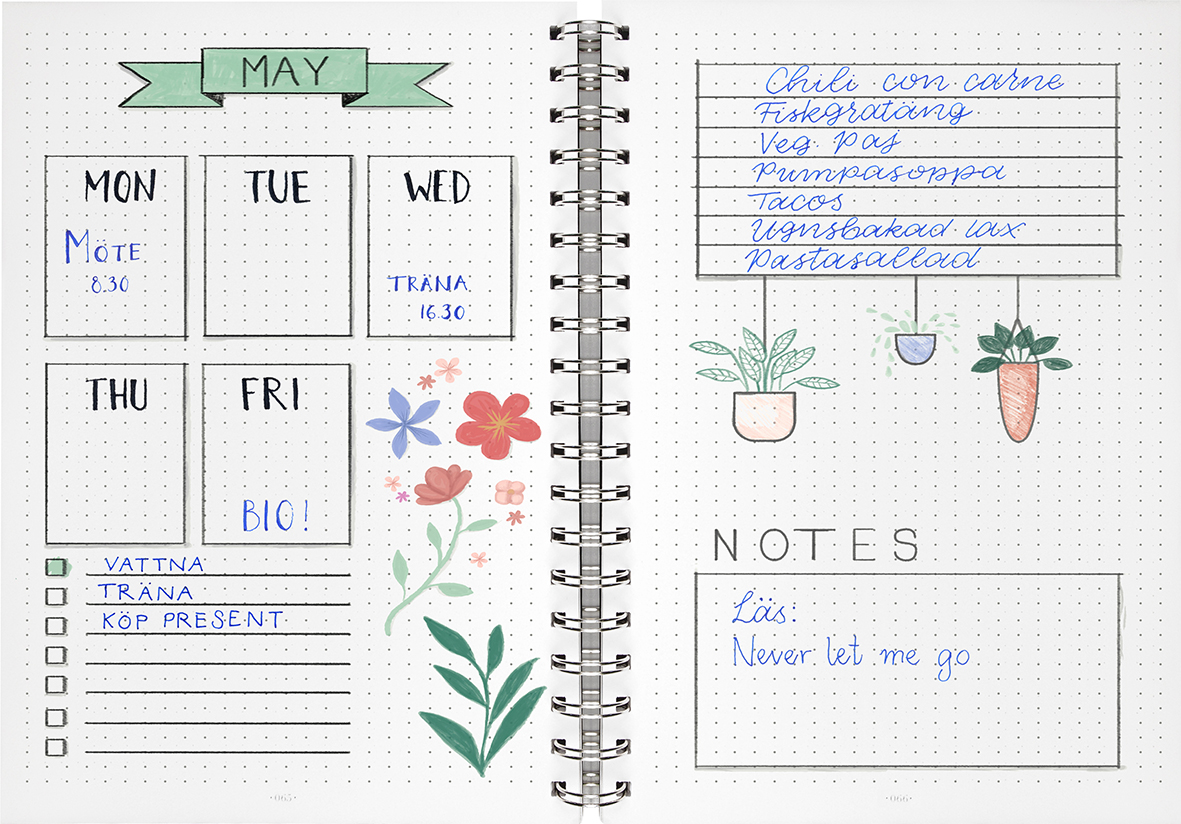 MAY
MON
MÖTE
8.30
TUE
WED
TRÄNA
16.30
THU
FRI
BIO!
VATTNA
TRÄNA
KÖP PRESENT
·065·
Chili con carne
Fiskgratäng
Veg. paj
Pumpasoppa
Tacos
Ugnsbakad lax
Pastasallad
NOTES
Läs:
Never let me go
·066·